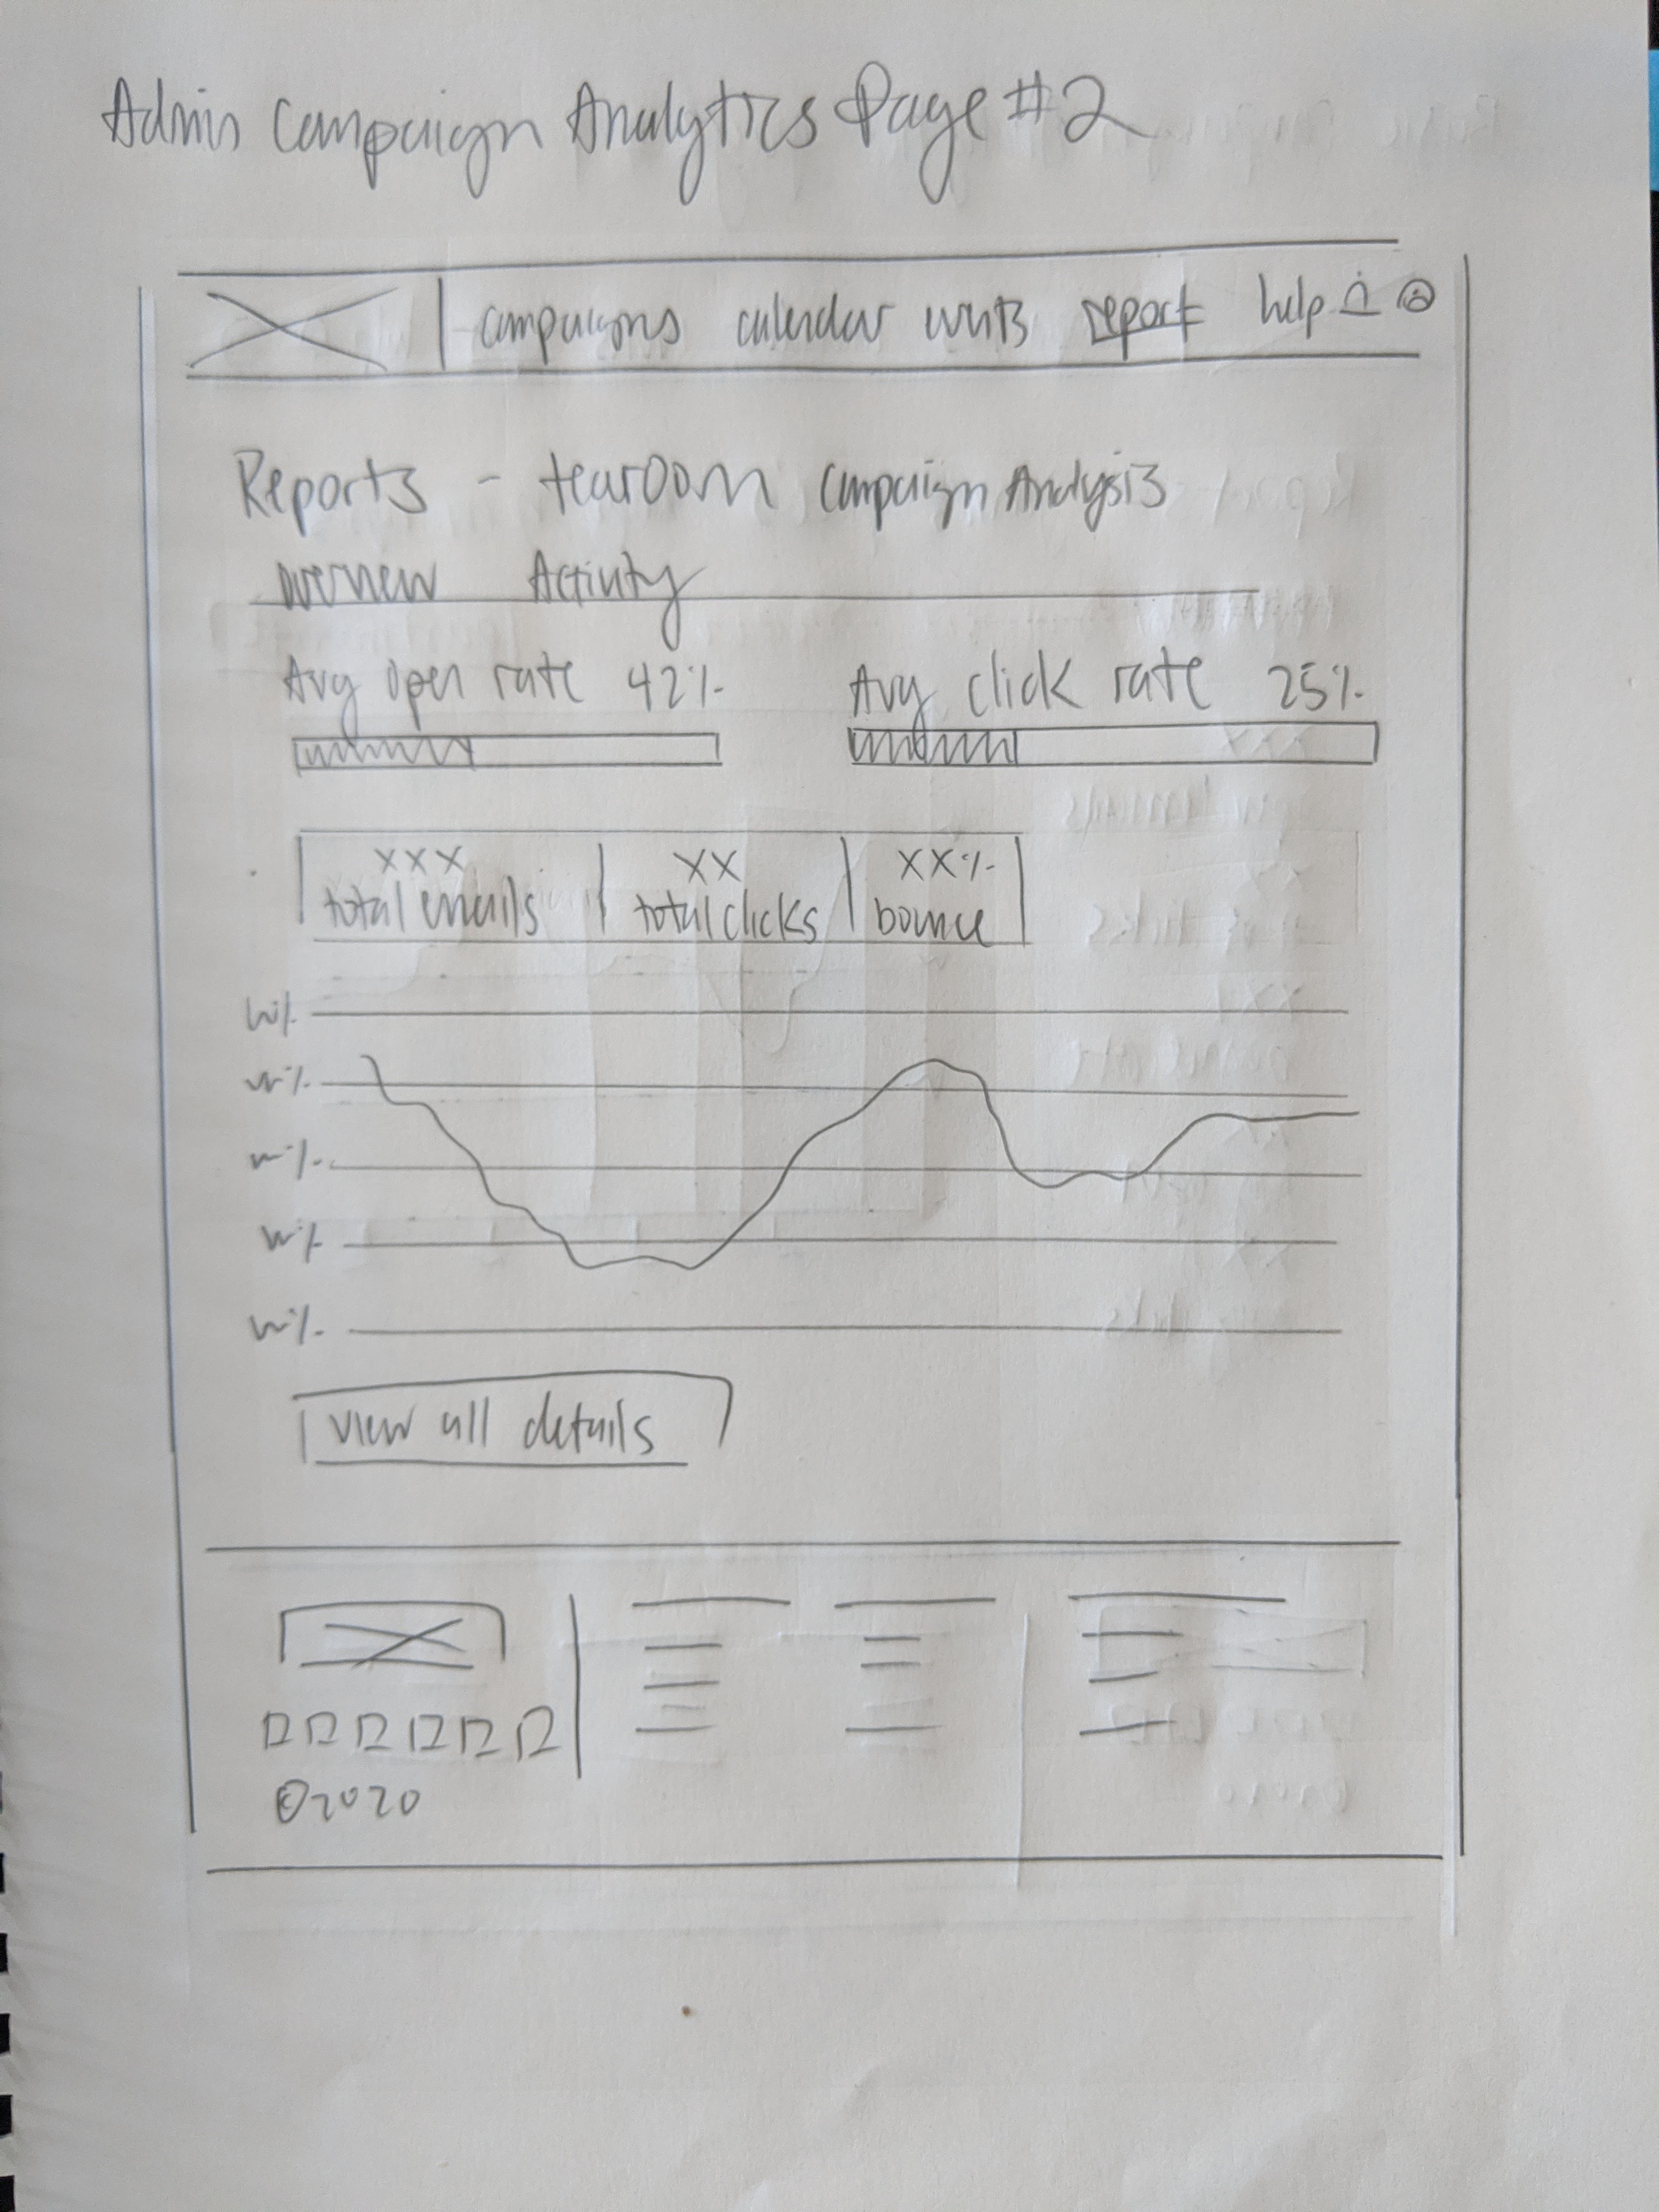 Admin Campaign Analytics Page #2
campaigns calendar events report help
Reports - tearoom campaign Analysis
overview Activity
Avg open rate 42% Avg click rate 25%
xxx xx xx%
total emails total clicks bounce
%
%
%
%
%
view all details
©2020